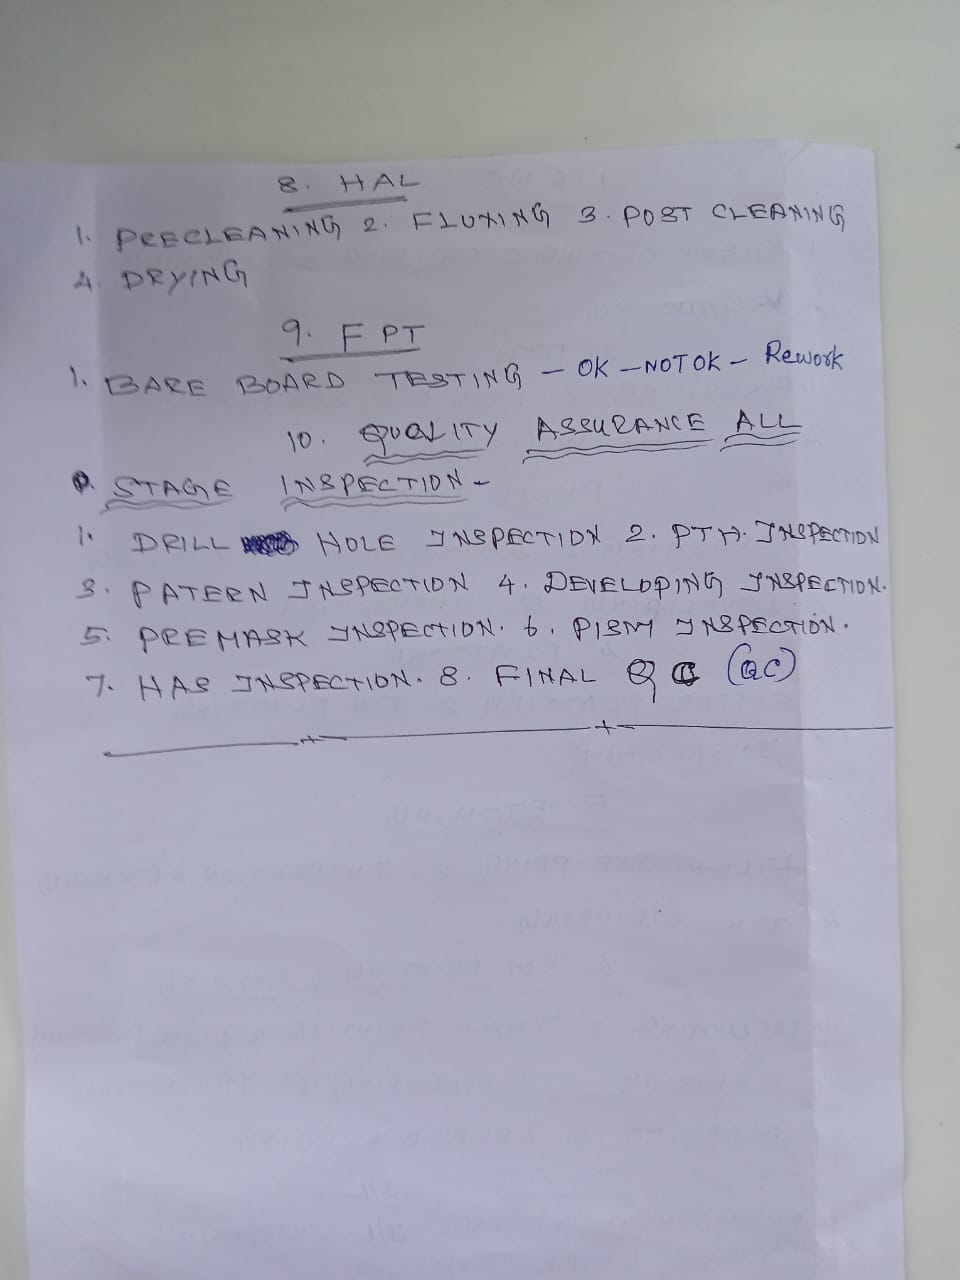 8. HAL
1. PRECLEANING 2. FLUXING 3. POST CLEANING
4. DRYING
9. F PT
1. BARE BOARD TESTING - OK - NOT OK - Rework
10. QUALITY ASSURANCE ALL
STAGE INSPECTION -
1. DRILL HOLE INSPECTION 2. PTH. INSPECTION
3. PATERN INSPECTION 4. DEVELOPING INSPECTION.
5. PREMASK INSPECTION. 6. PISM INSPECTION.
7. HAS INSPECTION. 8. FINAL Q C (QC)